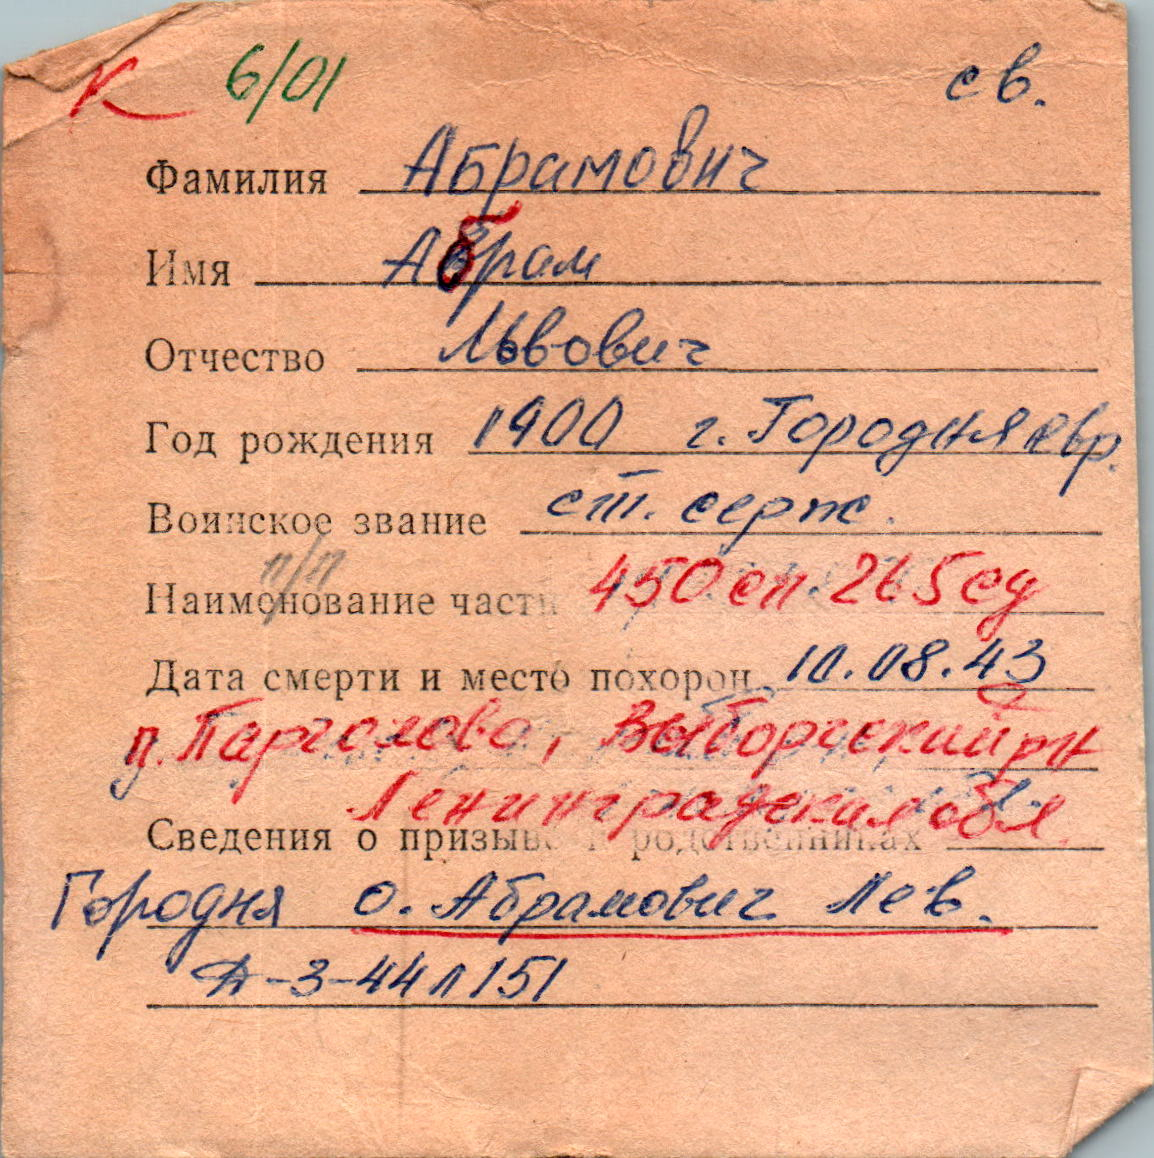 К 6/01 св.
Фамилия Абрамович
Имя Абрам
Отчество Львович
Год рождения 1900 г. Городня евр.
Воинское звание ст. серж.
п/п
Наименование части 450 сп. 265 сд
Дата смерти и место похорон 10.08.43
п. Парголово, Выборгский рн
Ленинградская обл
Сведения о призыве и родственниках
Городня о. Абрамович Лев.
Д-3-44 л 151